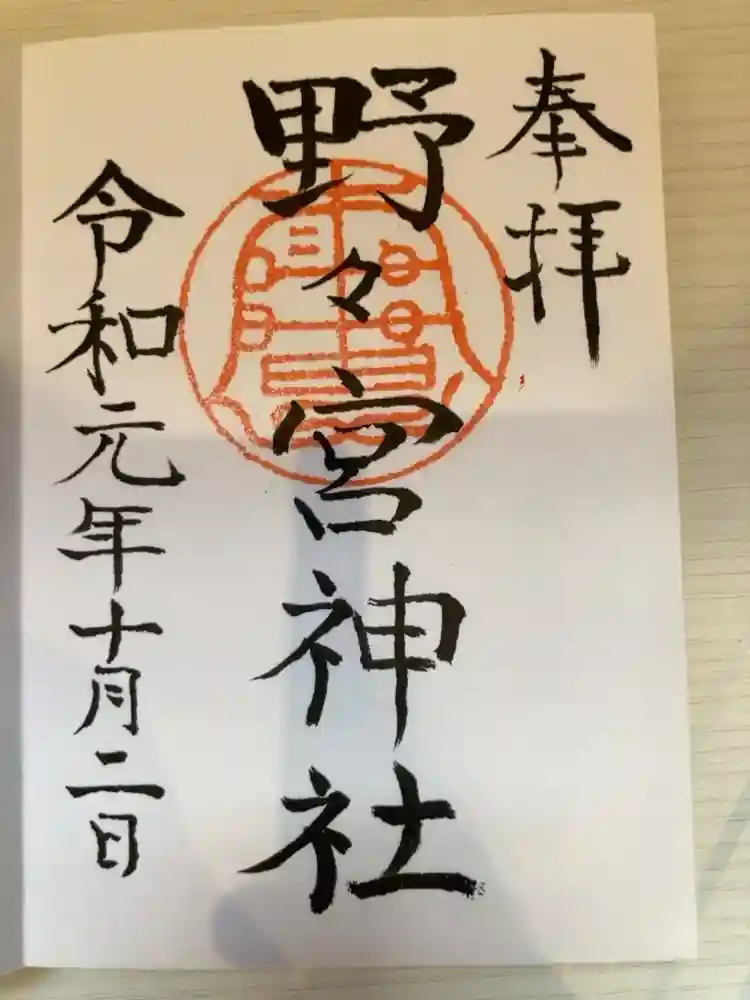 奉拝
野々宮神社
令和元年十月二日